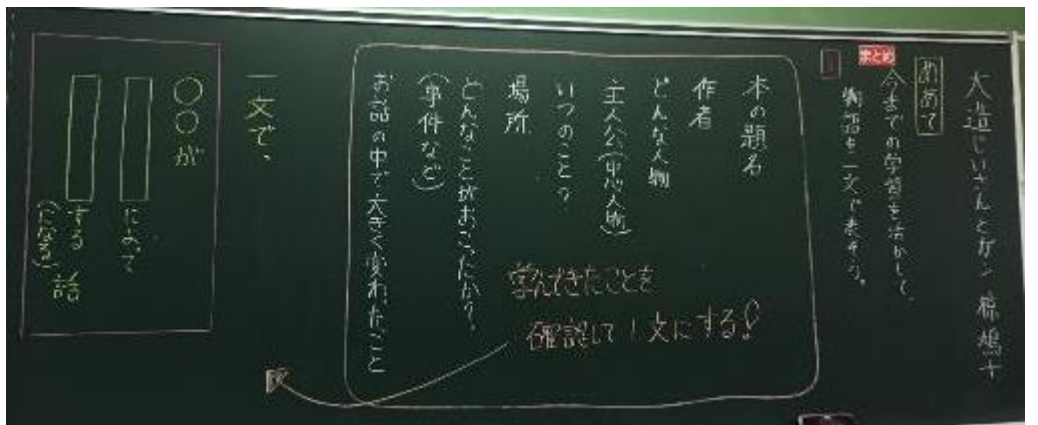 大造じいさんとガン 椋鳩十
めあて
まとめ
今までの学習を活かして、
物語を一文で表そう。
本の題名
作者
どんな人物
主人公(中心人物)
いつのこと?
場所
どんなことがおこったか?
(事件など)
お話の中で大きく変わったこと
学んできたことを
確認して1文にする!
一文で、
○○が
によって
する 話
(になる)